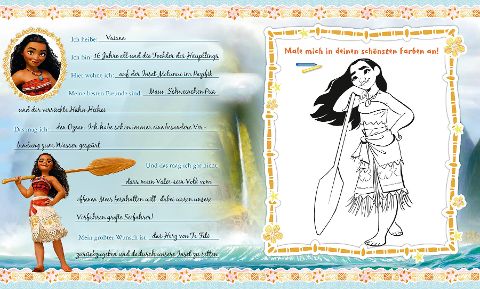 Ich heiße: Vaiana
Ich bin: 16 Jahre alt und die Tochter des Häuptlings
Hier wohne ich: auf der Insel Motunui im Pazifik
Meine besten Freunde sind: Maui, Schweinchen Pua
und der verrückte Hahn Heihei
Das mag ich: den Ozean. Ich habe schon immer eine besondere Ver-
bindung zum Wasser gespürt
Und das mag ich gar nicht:
dass mein Vater sein Volk vom
offenen Meer fernhalten will, dabei waren unsere
Vorfahren große Seefahrer!
Mein größter Wunsch ist: das Herz von Te Fiti
zurückzugeben und dadurch unsere Insel zu retten
Male mich in deinen schönsten Farben an!